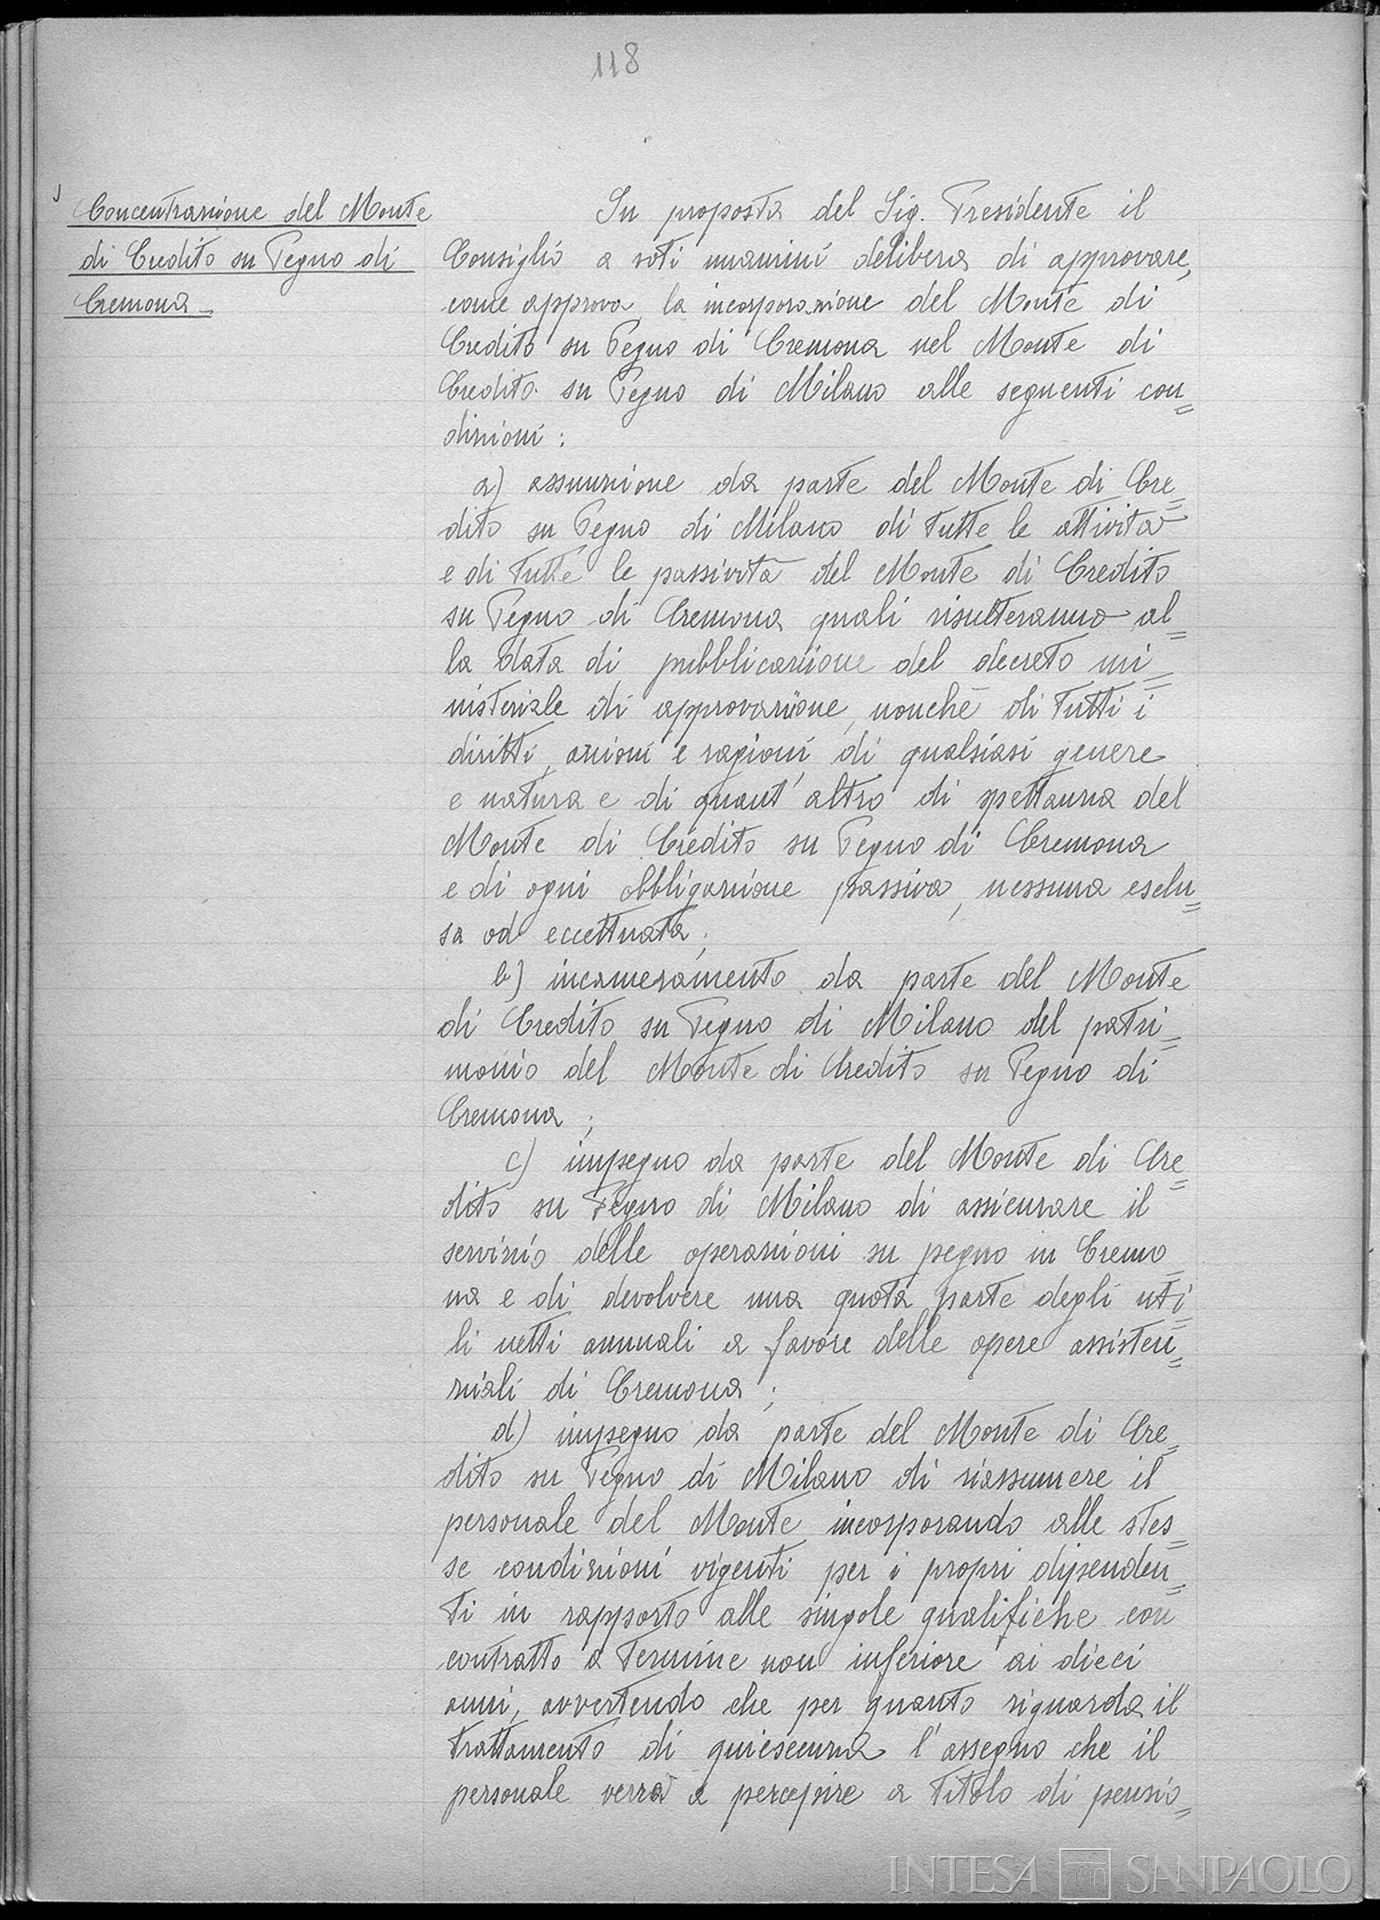 118
Concentrazione del Monte
di Credito su Pegno di
Cremona -
Su proposta del Sig. Presidente il
Consiglio a voti unanimi delibera di approvare,
come approva, la incorporazione del Monte di
Credito su Pegno di Cremona nel Monte di
Credito su Pegno di Milano alle seguenti con=
dizioni:
a) assunzione da parte del Monte di Cre=
dito su Pegno di Milano di tutte le attività
e di tutte le passività del Monte di Credito
su Pegno di Cremona quali risulteranno al=
la data di pubblicazione del decreto mi=
nisteriale di approvazione, nonchè di tutti i
diritti, azioni e ragioni di qualsiasi genere
e natura e di quant'altro di spettanza del
Monte di Credito su Pegno di Cremona
e di ogni obbligazione passiva, nessuna esclu=
sa od eccettuata;
b) incameramento da parte del Monte
di Credito su Pegno di Milano del patri=
monio del Monte di Credito su Pegno di
Cremona;
c) impegno da parte del Monte di Cre=
dito su Pegno di Milano di assicurare il
servizio delle operazioni su pegno in Cremo=
na e di devolvere una quota parte degli uti=
li netti annuali a favore delle opere assisten=
ziali di Cremona;
d) impegno da parte del Monte di Cre=
dito su Pegno di Milano di riassumere il
personale del Monte incorporando alle stes=
se condizioni vigenti per i propri dipenden=
ti in rapporto alle singole qualifiche con
contratto a termine non inferiore ai dieci
anni, avvertendo che per quanto riguarda il
trattamento di quiescenza l'assegno che il
personale verrà a percepire a titolo di pensio=
INTESA SANPAOLO